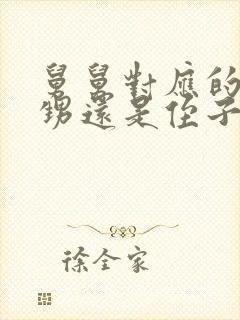 舅舅對應的
甥還是侄子
徐全家